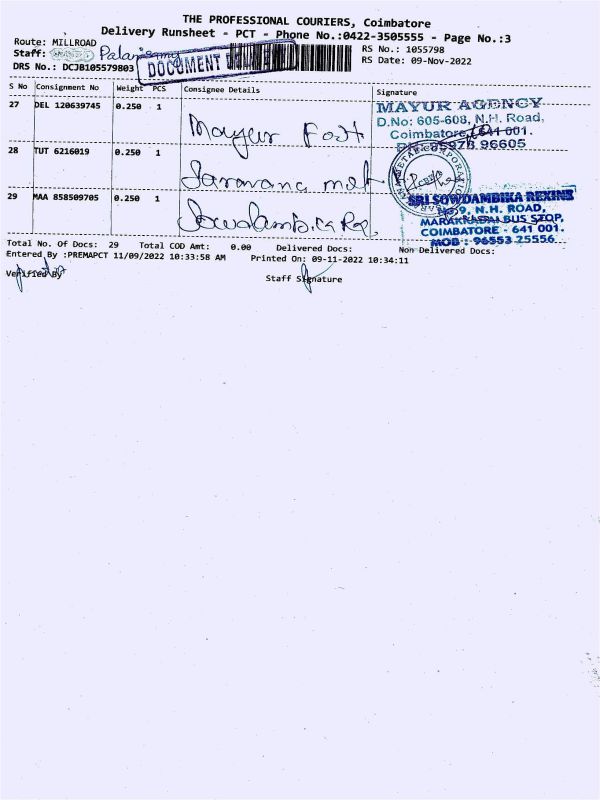 THE PROFESSIONAL COURIERS, Coimbatore
Delivery Runsheet - PCT - Phone No.:0422-3505555 - Page No.:3
Route: MILLROAD
RS No.: 1055798
Staff: Palanisamy
RS Date: 09-Nov-2022
DRS No.: DCJB105579803
DOCUMENT
S No Consignment No Weight PCS Consignee Details Signature
27 DEL 120639745 0.250 1 Mayur
MAYUR AGENCY
D.No: 605-608, N.H. Road,
Coimbatore - 641 001.
96605
28 TUT 6216019 0.250 1 Saravana met
29 MAA 858509705 0.250 1
SRI SOWDAMBIKA REXINS
NO:9, N.H. ROAD,
MARAKKADAI BUS STOP,
COIMBATORE - 641 001.
MOB : 96553 25556
Total No. Of Docs: 29 Total COD Amt: 0.00 Delivered Docs: Non Delivered Docs:
Entered By :PREMAPCT 11/09/2022 10:33:58 AM Printed On: 09-11-2022 10:34:11
Verified By
Staff Signature